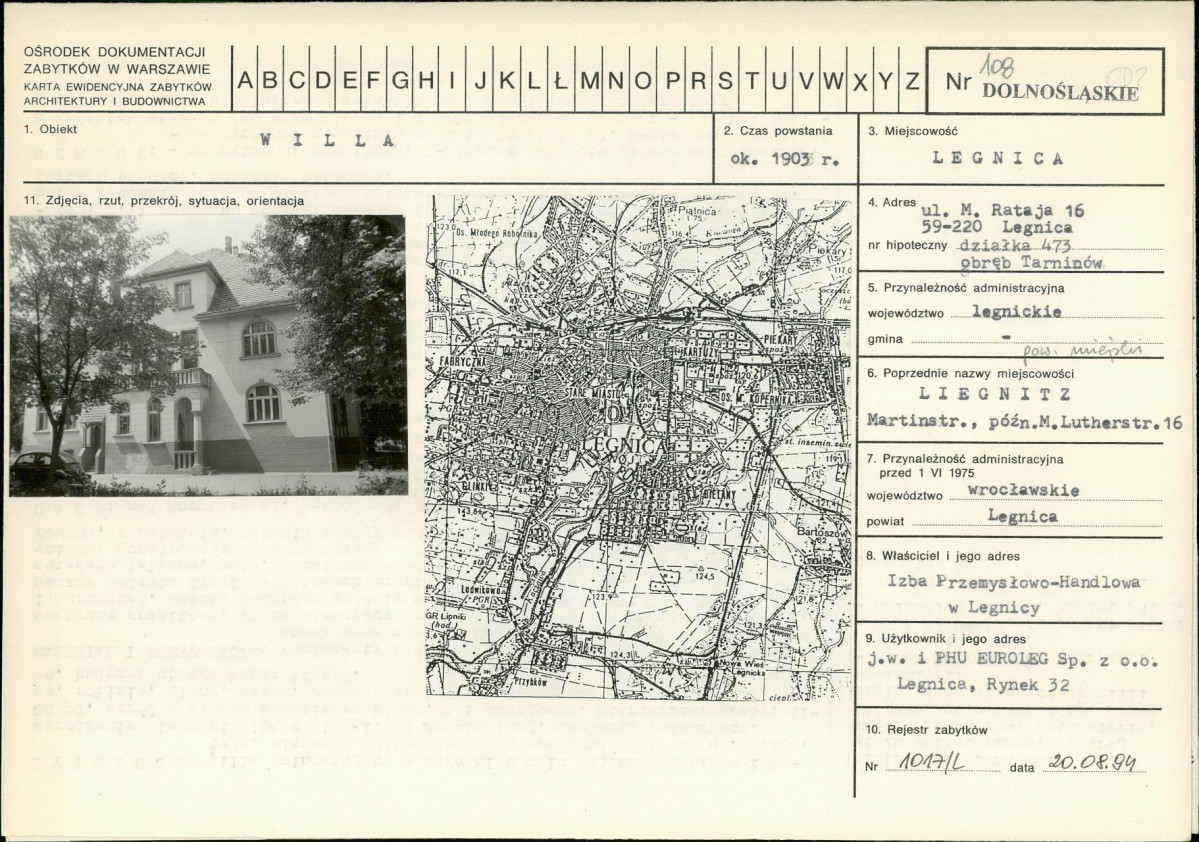 OŚRODEK DOKUMENTACJI
ZABYTKÓW W WARSZAWIE
KARTA EWIDENCYJNA ZABYTKÓW
ARCHITEKTURY I BUDOWNICTWA
A B C D E F G H I J K L Ł M N O P R S T U V W X Y Z
Nr 108
DOLNOŚLĄSKIE
1. Obiekt
W I L L A
2. Czas powstania
ok. 1903 r.
3. Miejscowość
L E G N I C A
11. Zdjęcia, rzut, przekrój, sytuacja, orientacja
4. Adres ul. M. Rataja 16
59-220 Legnica
nr hipoteczny działka 473
obręb Tarninów
5. Przynależność administracyjna
województwo legnickie
gmina -
pow. miejski
6. Poprzednie nazwy miejscowości
L I E G N I T Z
Martinstr., późn.M.Lutherstr.16
7. Przynależność administracyjna
przed 1 VI 1975
województwo wrocławskie
powiat Legnica
8. Właściciel i jego adres
Izba Przemysłowo-Handlowa
w Legnicy
9. Użytkownik i jego adres
j.w. i PHU EUROLEG Sp. z o.o.
Legnica, Rynek 32
10. Rejestr zabytków
Nr 1017/L data 20.08.94
Piątnica
Os. Młodego Robotnika
Piekary
FABRYCZNA
KARTUZY
PIEKARY
STARE MIASTO
OS. M. KOPERNIKA
LEGNICA
GLINKI
BIELANY
Bartoszów
124,5
123,9
Ludwikowo
PGR
GR Lipniki
(hod.)
121,3
124,3
Nowa Wieś
Legnicka
Przybków